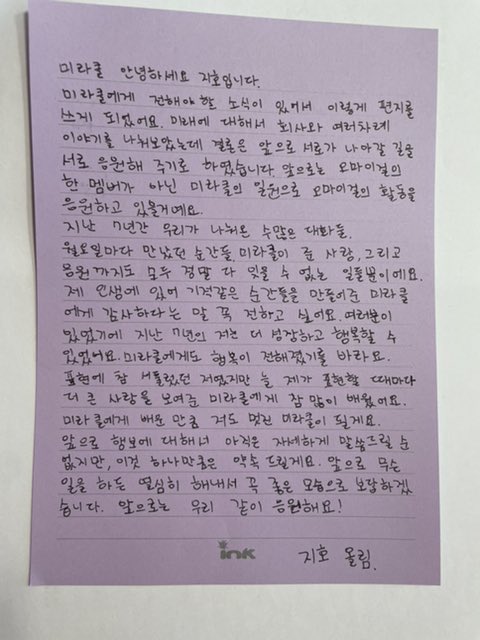 미라클 안녕하세요 지호입니다.
미라클에게 전해야 할 소식이 있어서 이렇게 편지를
쓰게 되었어요. 미래에 대해서 회사와 여러차례
이야기를 나눠보았는데 결론은 앞으로 서로가 나아갈 길을
서로 응원해 주기로 하였습니다. 앞으로는 오마이걸의
한 멤버가 아닌 미라클의 일원으로 오마이걸의 활동을
응원하고 있을거예요.
지난 7년간 우리가 나눠온 수많은 대화들.
월요일마다 만났던 순간들, 미라클이 준 사랑, 그리고
응원까지도 모두 정말 다 잊을 수 없는 일들뿐이에요.
제 인생에 있어 기적같은 순간들을 만들어준 미라클
에게 감사하다는 말 꼭 전하고 싶어요. 여러분이
있었기에 지난 7년의 저는 더 성장하고 행복할 수
있었어요. 미라클에게도 행복이 전해졌기를 바라요.
표현에 참 서툴렀던 저였지만 늘 제가 표현할 때마다
더 큰 사랑을 보여준 미라클에게 참 많이 배웠어요.
미라클에게 배운 만큼 저도 멋진 미라클이 될게요.
앞으로 행보에 대해서 아직은 자세하게 말씀드릴 순
없지만, 이것 하나만큼은 약속 드릴게요. 앞으로 무슨
일을 하든 열심히 해내서 꼭 좋은 모습으로 보답하겠
습니다. 앞으로는 우리 같이 응원해요!
ink
지호 올림.